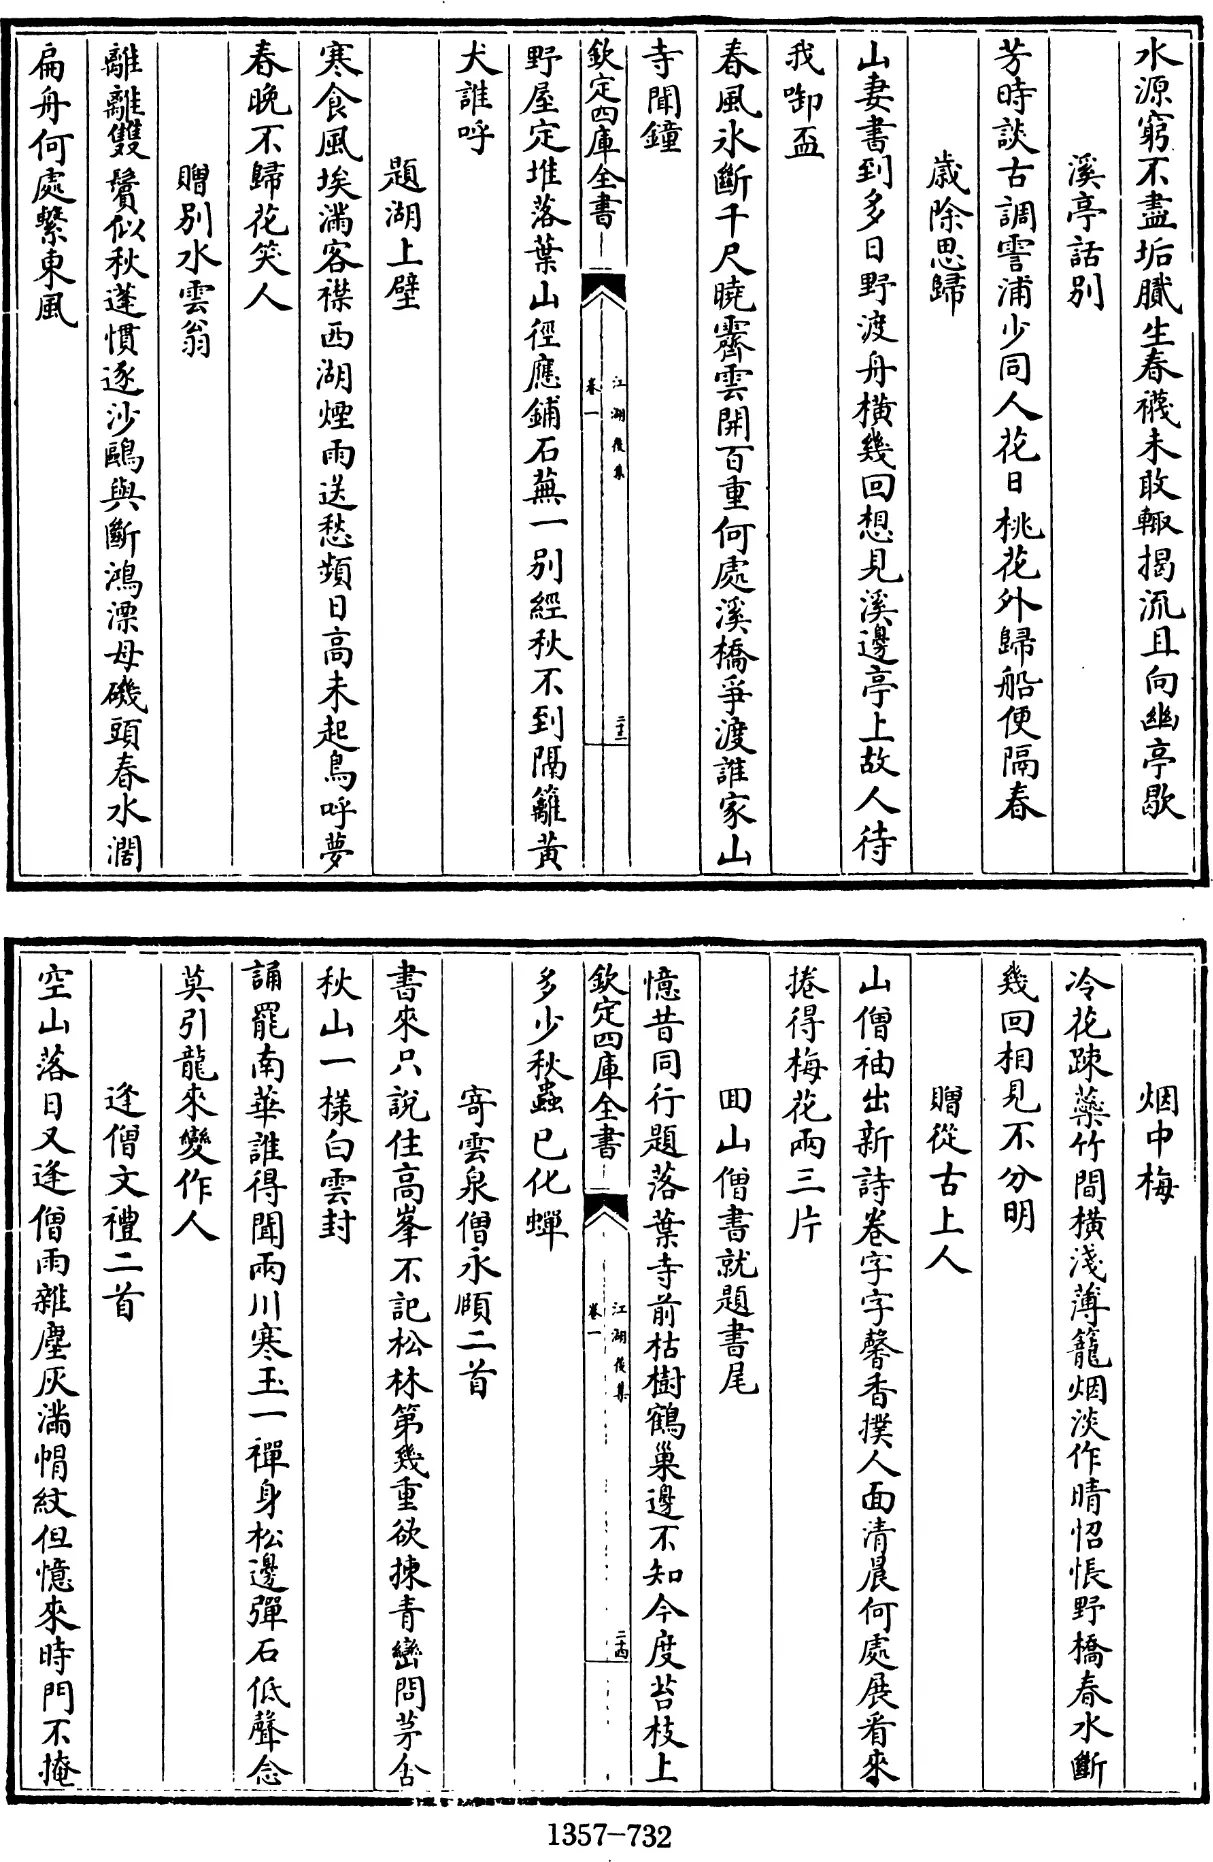 水源窮不盡垢膩生春襪未敢輙揭流且向幽亭歇
溪亭話別
芳時談古調雩浦少同人花日桃花外歸船便隔春
歲除思歸
山妻書到多日野渡舟橫幾回想見溪邊亭上故人待
我啣盃
春風氷斷千尺曉霽雲開百重何處溪橋爭渡誰家山
寺聞鐘
欽定四庫全書
江湖後集
卷一
二十三
野屋定堆落葉山徑應鋪石蕪一別經秋不到隔籬黃
犬誰呼
題湖上壁
寒食風埃滿客襟西湖煙雨送愁頻日高未起鳥呼夢
春晚不歸花笑人
贈別水雲翁
離離雙鬢似秋蓬慣逐沙鷗與斷鴻漂母磯頭春水濶
扁舟何處繫東風
烟中梅
冷花踈蘂竹間橫淺薄籠烟淡作晴怊悵野橋春水斷
幾回相見不分明
贈從古上人
山僧袖出新詩卷字字馨香撲人面清晨何處展看來
捲得梅花兩三片
囬山僧書就題書尾
憶昔同行題落葉寺前枯樹鶴巢邊不知今度苔枝上
欽定四庫全書
江湖後集
卷一
二十四
多少秋蟲已化蟬
寄雲泉僧永頤二首
書來只說住高峯不記松林第幾重欲揀青巒問茅舍
秋山一樣白雲封
誦罷南華誰得聞兩川寒玉一禪身松邊彈石低聲念
莫引龍來變作人
逢僧文禮二首
空山落日又逢僧雨雜塵灰滿帽紋但憶來時門不掩
1357-732